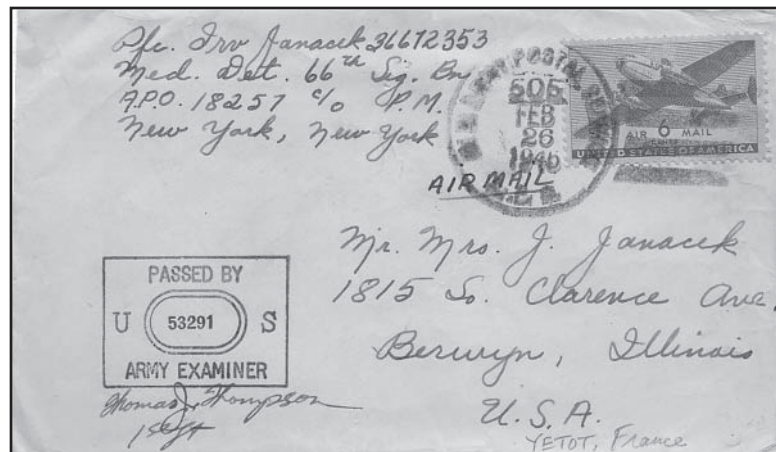 Pfc. Irv Janacek 36672353
Med. Det. 66th Sig. Bn
A.P.O. 18257 c/o P.M.
New York, New York
U.S. ARMY POSTAL
505
FEB
26
AIR 6 MAIL
CENTS
UNITED STATES OF AMERICA
AIR MAIL
Mr. Mrs. J. Janacek
1815 So. Clarence Ave.
Berwyn, Illinois
U.S.A.
YETOT, France
PASSED BY
U 53291 S
ARMY EXAMINER
Thomas J. Thompson
1st Lt